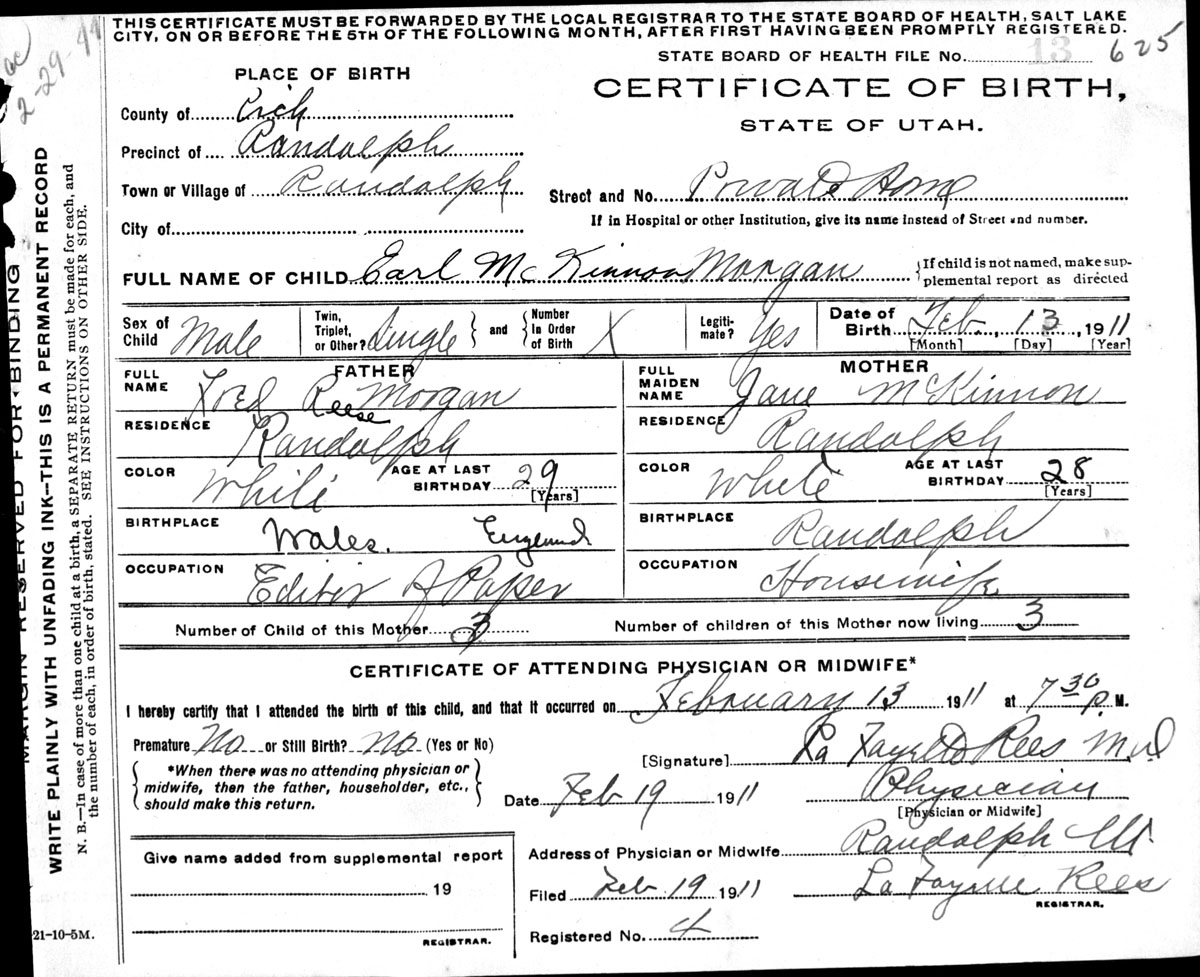 THIS CERTIFICATE MUST BE FORWARDED BY THE LOCAL REGISTRAR TO THE STATE BOARD OF HEALTH, SALT LAKE
CITY, ON OR BEFORE THE 5TH OF THE FOLLOWING MONTH, AFTER FIRST HAVING BEEN PROMPTLY REGISTERED.
STATE BOARD OF HEALTH FILE No. 13 625
2-29-44
PLACE OF BIRTH
CERTIFICATE OF BIRTH,
STATE OF UTAH.
County of Rich
Precinct of Randolph
Town or Village of Randolph
Street and No. Private Home
If in Hospital or other Institution, give its name instead of Street and number.
City of
FULL NAME OF CHILD Earl McKinnon Morgan {If child is not named, make sup-
plemental report as directed
Sex of Child Male
Twin, Triplet, or Other? Single } and { Number In Order of Birth X
Legiti-mate? Yes
Date of Birth Feb. 13, 1911
[Month] [Day] [Year]
FATHER
FULL NAME Fred Reese Morgan
RESIDENCE Randolph
COLOR White AGE AT LAST BIRTHDAY 29
[Years]
BIRTHPLACE Wales. England
OCCUPATION Editor of Paper
MOTHER
FULL MAIDEN NAME Jane McKinnon
RESIDENCE Randolph
COLOR White AGE AT LAST BIRTHDAY 28
[Years]
BIRTHPLACE Randolph
OCCUPATION Housewife
Number of Child of this Mother 3 Number of children of this Mother now living 3
CERTIFICATE OF ATTENDING PHYSICIAN OR MIDWIFE*
I hereby certify that I attended the birth of this child, and that it occurred on February 13, 1911 at 7 30 P. M.
Premature No or Still Birth? No (Yes or No)
{ *When there was no attending physician or
midwife, then the father, householder, etc.,
should make this return. }
[Signature] La Fayette Rees M.D
Date Feb 19 1911 Physician
[Physician or Midwife]
Address of Physician or Midwife Randolph Ut.
Give name added from supplemental report
19
REGISTRAR.
Filed Feb 19 1911 La Fayette Rees
REGISTRAR.
Registered No. 4
21-10-5M.
MARGIN RESERVED FOR BINDING
WRITE PLAINLY WITH UNFADING INK—THIS IS A PERMANENT RECORD
N. B.—In case of more than one child at a birth, a SEPARATE RETURN must be made for each, and
the number of each, in order of birth, stated. SEE INSTRUCTIONS ON OTHER SIDE.